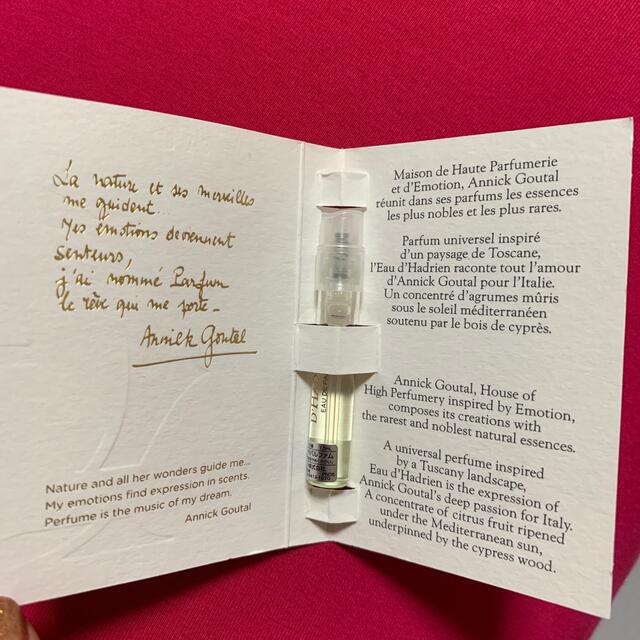 La nature et ses merveilles
me guident...
Mes émotions deviennent
senteurs,
j'ai nommé Parfum
le rêve qui me porte-
Annick Goutal
Nature and all her wonders guide me...
My emotions find expression in scents.
Perfume is the music of my dream.
Annick Goutal
D'H
EAU DE PA
Maison de Haute Parfumerie
et d'Emotion, Annick Goutal
réunit dans ses parfums les essences
les plus nobles et les plus rares.
Parfum universel inspiré
d'un paysage de Toscane,
l'Eau d'Hadrien raconte tout l'amour
d'Annick Goutal pour l'Italie.
Un concentré d'agrumes mûris
sous le soleil méditerranéen
soutenu par le bois de cyprès.
Annick Goutal, House of
High Perfumery inspired by Emotion,
composes its creations with
the rarest and noblest natural essences.
A universal perfume inspired
by a Tuscany landscape,
Eau d'Hadrien is the expression of
Annick Goutal's deep passion for Italy.
A concentrate of citrus fruit ripened
under the Mediterranean sun,
underpinned by the cypress wood.